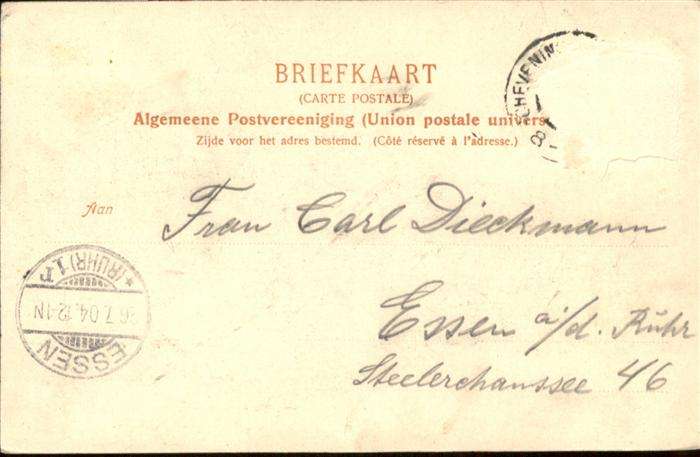 BRIEFKAART
(CARTE POSTALE)
Algemeene Postvereeniging (Union postale univers
Zijde voor het adres bestemd. (Côté réservé à l'adresse.)
CHEVENIN
8
Aan
Frau Carl Dieckmann
Essen a/d. Ruhr
Steelerchaussee 46
ESSEN
6.7.04.12-1N
*(RUHR) 1r